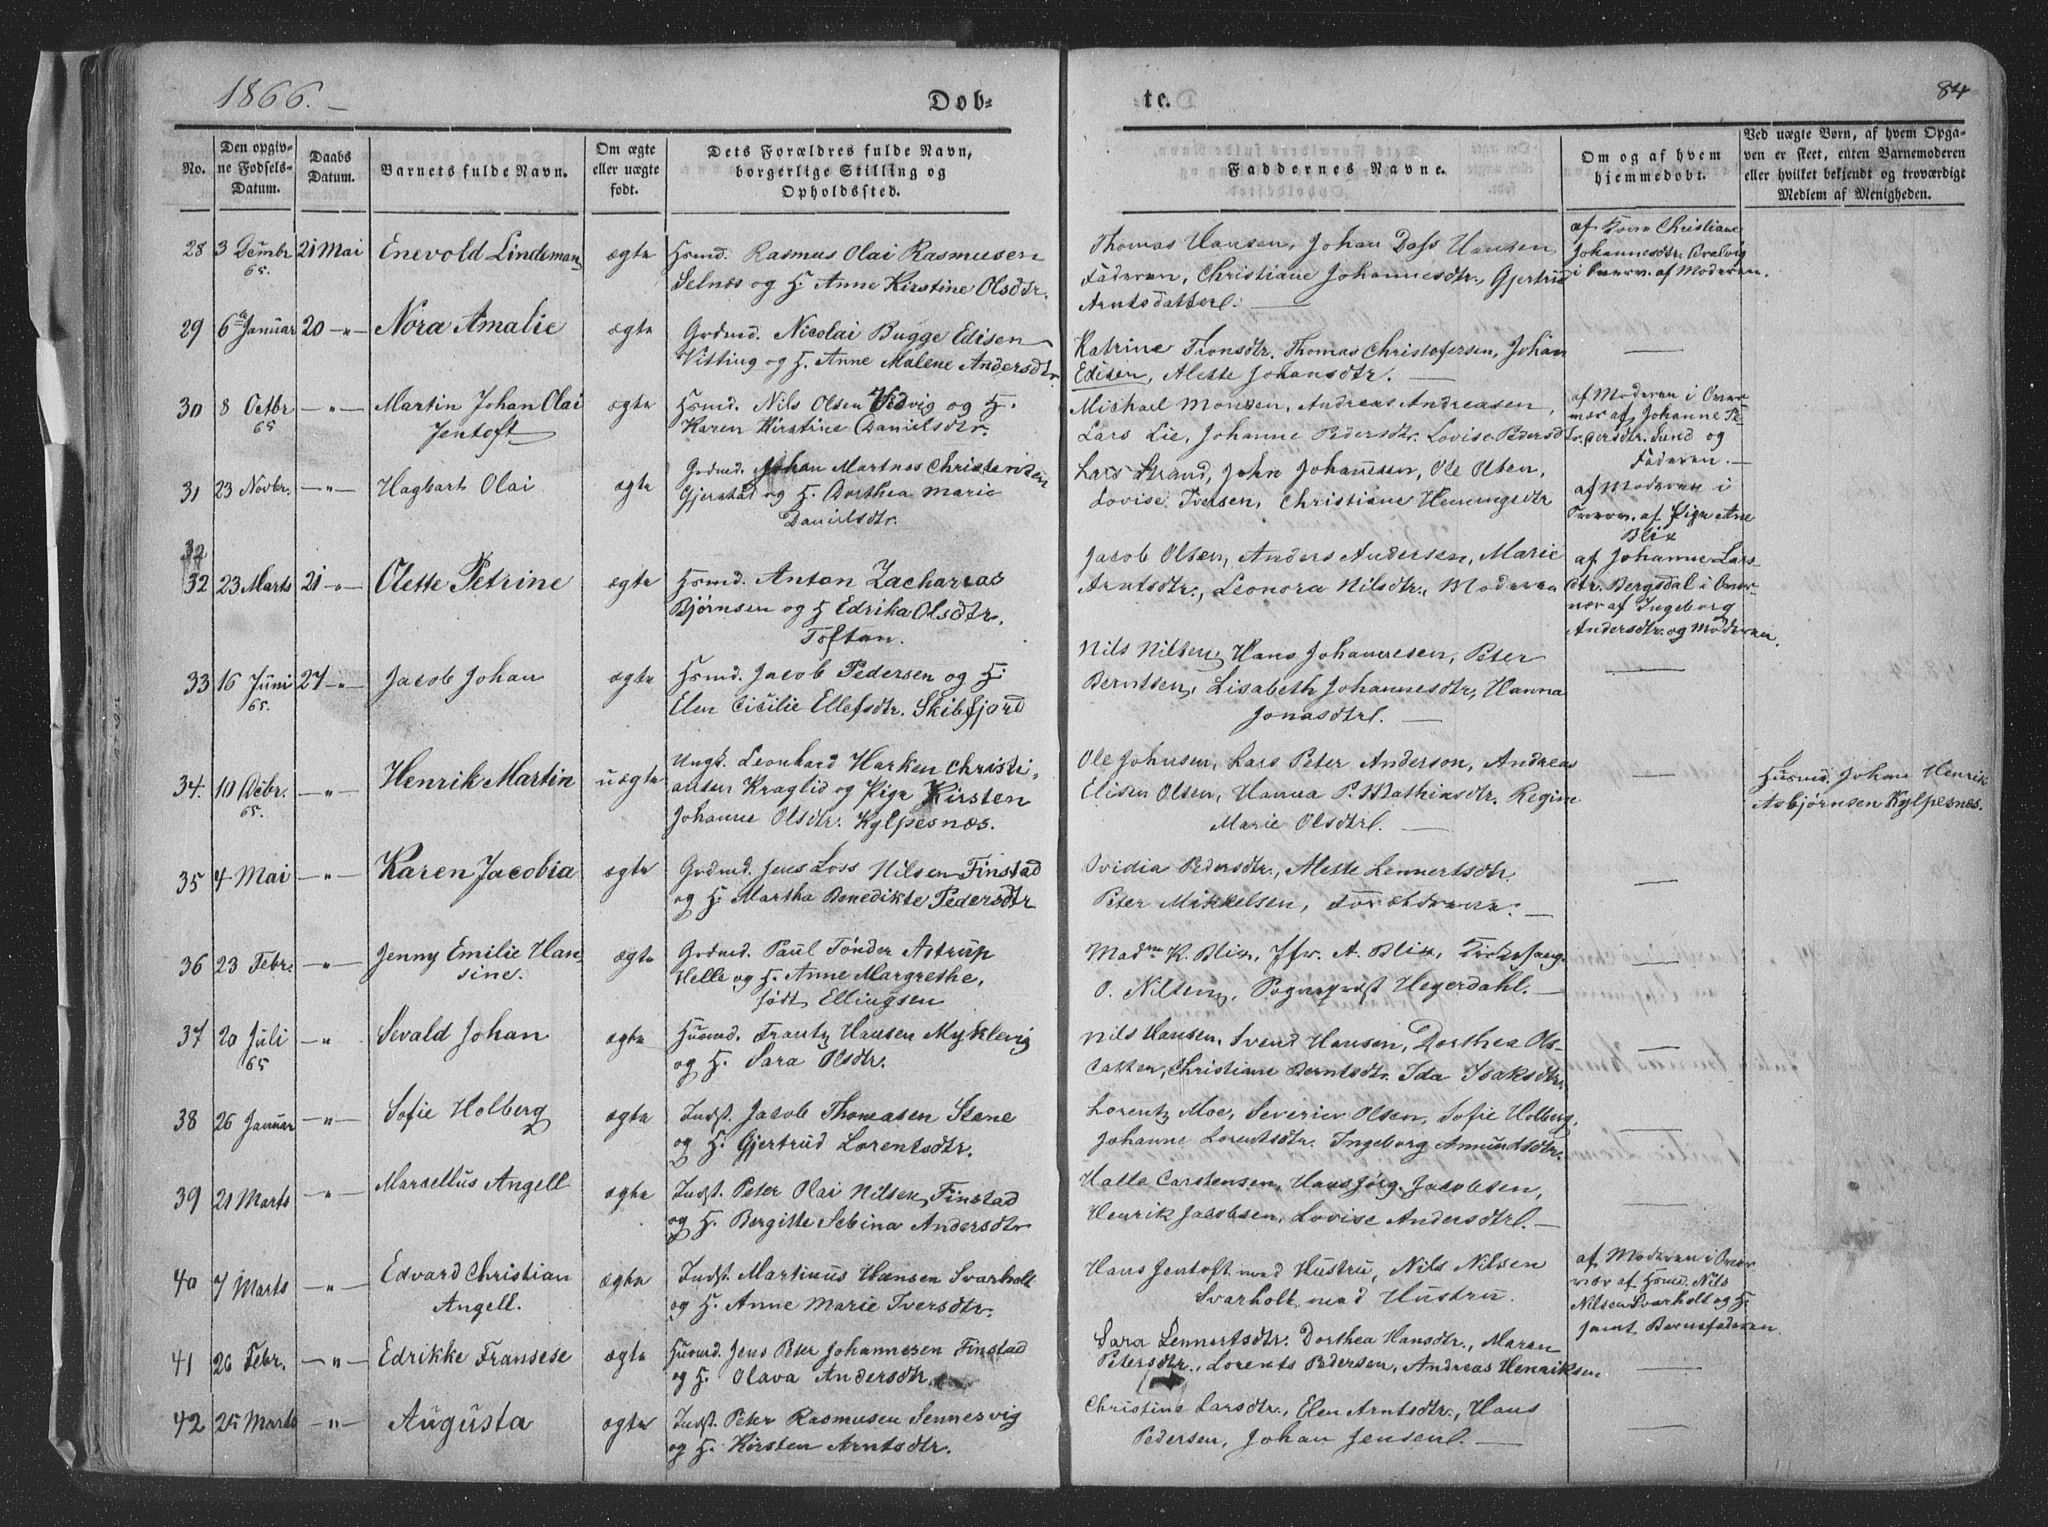 1866.
Døb-
te.
84
No.
Den opgiv-
ne Fødsels-
Datum.
Daabs
Datum.
Barnets fulde Navn.
Om ægte
eller uægte
født.
Dets Forældres fulde Navn,
borgerlige Stilling og
Opholdssted.
Faddernes Navne.
Om og af hvem
hjemmedøbt.
Ved uægte Børn, af hvem Opga-
ven er skeet, enten Barnemoderen
eller hvilket bekjendt og troværdigt
Medlem af Menigheden.
28 3 Decmbr 65. 21 Mai Enevold Lindeman ægte Hsmd. Rasmus Olai Rasmusen
Selnæs og H. Anne Kirstine Olsdtr.
Thomas Hansen, Johan Dass Hansen
Faderen, Christiane Johannesdtr., Gjertrud
Arntsdatter.
af Christiane
Johannesdtr.
i Overv. af Moderen.
29 6 Januar 20 -"- Nora Amalie ægte Grdmd. Nicolai Bugge Edisen
Vitting og H. Anne Malene Andersdtr.
Katrine Tronsdtr. Thomas Christofersen, Johan
Edisen, Alette Johansdtr.
30 8 Octbr 65 -"- Martin Johan Olai
Jentoft
ægte Hsmd. Nils Olsen Vidvig og H.
Karen Kirstine Danielsdtr.
Michael Monsen, Andreas Andreasen,
Lars Lie, Johanne Pedersdtr. Lovise Pedersdtr.
af Moderen i Over-
vær af Johanne Pe-
dersdtr. Sund og
Faderen.
31 23 Novbr. -"- Hagbart Olai ægte Grdmd. Johan Martnes Christensen
Gjerstad og H. Dorthea Marie
Danielsdtr.
Lars Strand, John Johansen, Ole Olsen,
Lovise Iversen, Christiane Henningsdtr
af Moderen i
Overv. af Pige Ane
Blix
32
32 23 Marts 21 -"- Olette Petrine ægte Hsmd. Anton Zacharias
Bjørnsen og H. Edrika Olsdtr.
Toftan.
Jacob Olsen, Anders Andersen, Marie
Arntsdtr., Leonora Nilsdtr., Moderen
af Johanne Lars-
dtr. Bergsdal i Over-
vær af Ingeborg
Andersdtr. og Moderen.
33 16 Juni 65. 27 -"- Jacob Johan ægte Hsmd. Jacob Pedersen og H.
Elen Cicilie Ellefsdtr. Skibfjord
Nils Nilsen, Hans Johannesen, Peter
Berntsen, Lisabeth Johannesdtr., Hanna
Jonasdtr.
34. 10 Decbr. 65. -"- Henrik Martin uægte Ungk. Leonhard Harken Christi-
ansen Kraglid og Pige Kirsten
Johanne Olsdtr. Kylpesnæs.
Ole Johnsen, Lars Peter Anderson, Andreas
Elisen Olsen, Hanna P. Mathiasdtr. Regine
Marie Olsdtr.
Husmd. Johan Henrik
Asbjørnsen Kylpesnes.
35 4 Mai -"- Karen Jacobia ægte Grdmd. Jens Loss Nilsen Finstad
og H. Martha Benedikte Pedersdtr
Ovidia Pedersdtr., Alette Lennertsdtr.
Peter Mikkelsen, Forældrene.
36 23 Febr. -"- Jenny Emilie Han-
sine.
ægte Grdmd. Paul Tønder Astrup
Helle og H. Anne Margrethe,
født Ellingsen
Madm K. Blix, Jfr. A. Blix, Kirkesang.
O. Nilsen, Sogneprest Hegerdahl.
37 20 Juli 65 -"- Sevald Johan ægte Husmd. Frantz Hansen Myklevig
og H. Sara Olsdtr.
Nils Hansen, Svend Hansen, Dorthea Ols-
datter, Christiane Berntsdtr. Ida Isaksdtr.
38 26 Januar -"- Sofie Holberg ægte Indst. Jacob Thomasen Stene
og H. Gjertrud Lorentsdtr.
Lorentz Moe, Severin Olsen, Sofie Holberg,
Johanne Lorentsdtr. Ingeborg Amundsdtr.
39 21 Marts -"- Marsellus Angell ægte Indst. Peter Olai Nilsen Finstad
og H. Bergitte Sebina Andersdtr
Halle Carstensen, Hans Jørg. Jacobsen,
Henrik Jacobsen, Lovise Andersdtr.
40 7 Marts -"- Edvard Christian
Angell.
ægte Indst. Martinus Hansen Svarholt
og H. Anne Marie Iversdtr.
Hans Jentoft med Hustru, Nils Nilsen
Svarholt med Hustru.
af Moderen i Over-
vær af Hsmd. Nils
Nilsen Svarholt og H.
samt Barnefaderen
41 26 Febr. -"- Edrikke Fransese ægte Husmd. Jens Peter Johannesen Finstad
og H. Olava Andersdtr.
Sara Lennertsdtr. Dorthea Hansdtr., Maren
Petersdtr., Lorents Pedersen, Andreas Henriksen
42 25 Marts -"- Augusta ægte Indst. Peter Rasmusen Sennesvig
og H. Kirsten Arntsdtr.
Christine Larsdtr., Elen Arntsdtr., Hans
Pedersen, Johan Jensen.